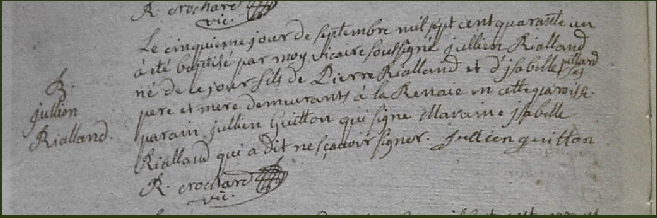 R. crochard
vic.
Le cinquieme jour de septembre mil sept cent quarante un
a été baptisé par moy vicaire soussigné jullien Rialland
né de ce jour fils de Pierre Rialland et d'jsabelle
pere et mere demeurants à la Renaie en cette paroisse.
parain jullien Guitton qui signe Maraine jsabelle
Rialland qui a dit ne sçavoir signer. jullien guitton
R. crochard
vic.
B
jullien
Rialland.